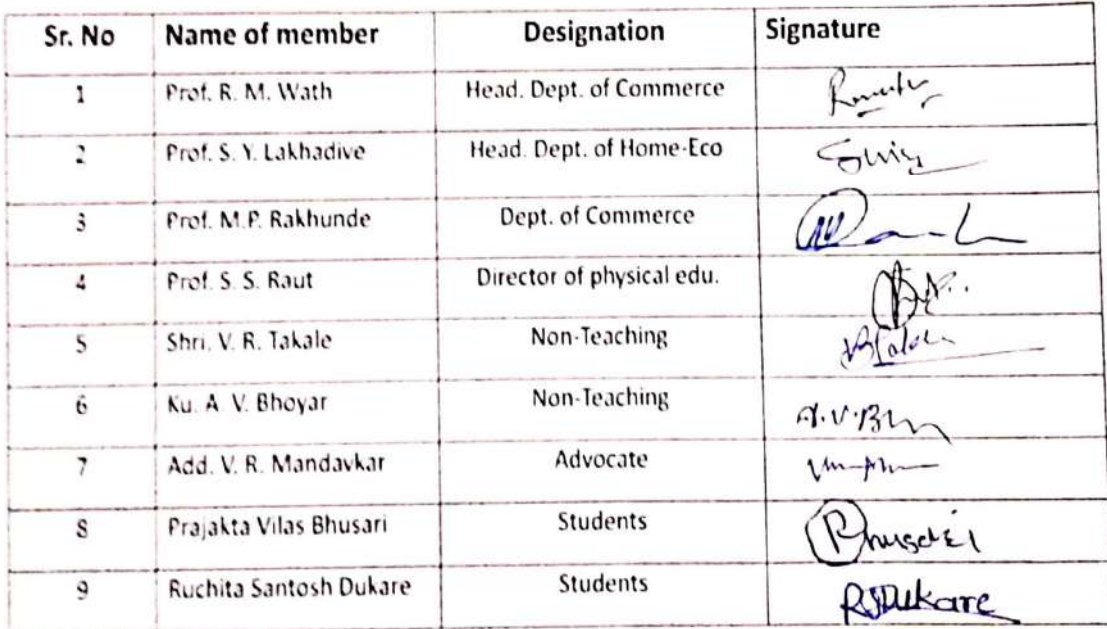 Sr. No Name of member Designation Signature
1 Prof. R. M. Wath Head. Dept. of Commerce
2 Prof. S. Y. Lakhadive Head. Dept. of Home-Eco
3 Prof. M.P. Rakhunde Dept. of Commerce
4 Prof. S. S. Raut Director of physical edu.
5 Shri. V. R. Takale Non-Teaching
6 Ku. A. V. Bhoyar Non-Teaching
7 Add. V. R. Mandavkar Advocate
8 Prajakta Vilas Bhusari Students
9 Ruchita Santosh Dukare Students RSDukare